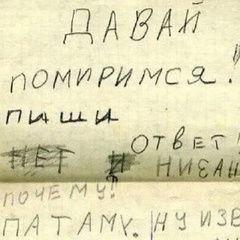 ДАВАЙ
ПОМИРИМСЯ.
ПИШИ
ОТВЕТ!
НЕТ И НИЗАЧ
ПОЧЕМУ!
ПАТАМУ. НУ ИЗВ